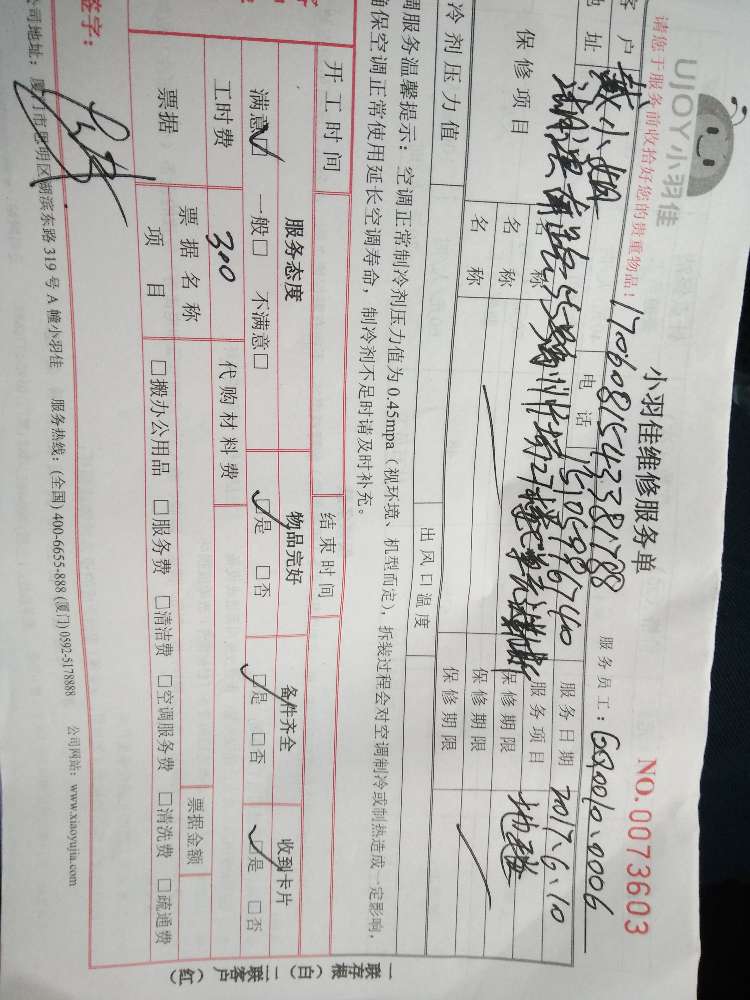 UJOY小羽佳
小羽佳维修服务单
NO.0073603
请您于服务前收拾好您的贵重物品!
17060815423781788
服务员工:
客户 戴小姐 电话 服务日期 2017.6.10
地址 服务项目
保修项目 名称 保修期限
名称 保修期限
名称 保修期限
冷剂压力值 出风口温度
调服务温馨提示:空调正常制冷剂压力值为0.45mpa(视环境、机型而定),拆装过程会对空调制冷或制热造成一定影响,
确保空调正常使用延长空调寿命,制冷剂不足时请及时补充。
开工时间 结束时间
服务态度 物品完好 备件齐全 收到卡片
满意☑ 一般□ 不满意□ ☑是 □否 ☑是 □否 ☑是 □否
工时费 300 代购材料费
票据 票据名称 票据金额
项目 □搬办公用品 □服务费 □清洁费 □空调服务费 □清洗费 □疏通费
签字:
公司地址:厦门市思明区湖滨东路319号A幢小羽佳 服务热线:(全国)400-6655-888(厦门)0592-5178888 公司网站:www.xiaoyujia.com
一联存根(白) 二联客户(红)